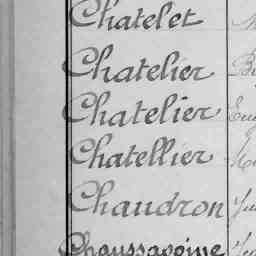 Chatelet
Chatelier
Chatelier
Chatellier
Chaudron
Chaussavoine